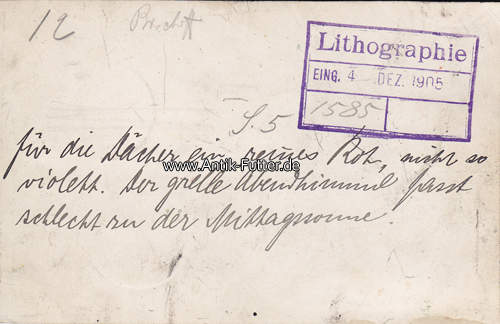 12
Lithographie
EING. 4 DEZ. 1905
1585
S. 5
für die Dächer ein reines Rot, nicht so
www.Antik-Futter.de
violett. Der grelle Abendhimmel passt
schlecht zu der Mittagsonne.